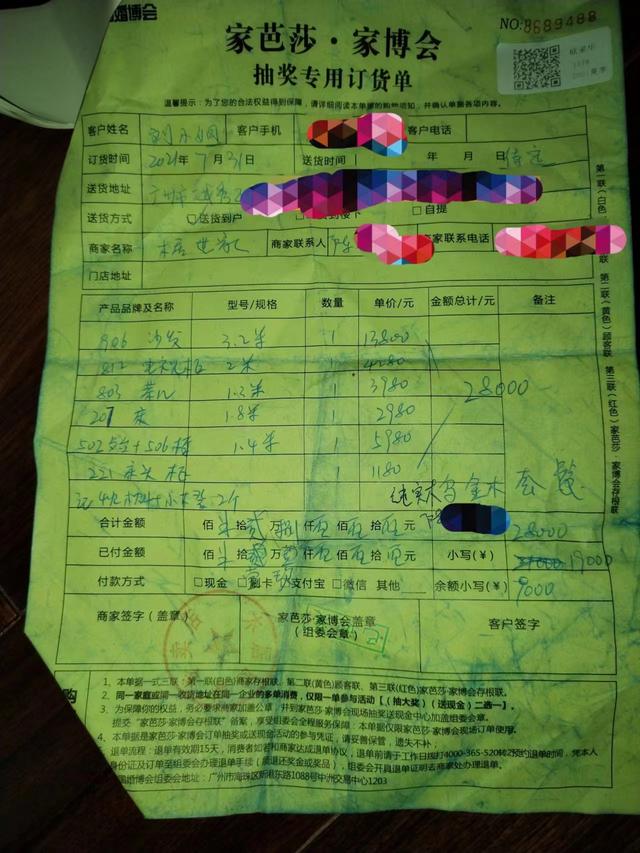 婚博会
NO:8689488
家芭莎·家博会
抽奖专用订货单
温馨提示:为了您的合法权益得到保障,请详细阅读本单据的购物须知,并确认单据各项内容。
客户姓名 客户手机 客户电话
订货时间 2021年7月31日 送货时间 年 月 日 待定
送货地址 广州市
送货方式 □送货到户 □自提
商家名称 商家联系人 商家联系电话
门店地址
产品品牌及名称 型号/规格 数量 单价/元 金额总计/元 备注
906 沙发 3.2米 1 13800
812 电视柜 2米 1 4280
803 茶几 1.3米 1 3980 28000
207 床 1.8米 1 2980
502 台+506椅 1.4米 1 5980
221 床头柜 1 1180
纯实木乌金木套餐
合计金额 佰 拾 万 仟 佰 拾 元 28000
已付金额 佰 拾 万 仟 佰 拾 元 小写(¥) 19000
付款方式 □现金 □刷卡 □支付宝 □微信 其他 余额小写(¥) 9000
商家签字(盖章) 家芭莎·家博会盖章 客户签字
(组委会章)
第一联(白色) 第二联(黄色)顾客联 第三联(红色)家芭莎·家博会存根联
1、本单据一式三联:第一联(白色)商家存根联、第二联(黄色)顾客联、第三联(红色)家芭莎·家博会存根联。
2、同一家庭或同一收货地址在同一企业的多单消费,仅限一单参与活动【(抽大奖)(送现金)二选一】。
3、为保障你的权益,务必要求商家加盖公章,并到家芭莎·家博会现场抽奖送现金中心加盖组委会章。
提交“家芭莎·家博会存根联”备案,享受组委会全程服务保障;本单据仅限家芭莎·家博会现场订单使用。
4、本单据是家芭莎·家博会订单抽大奖或送现金活动的参与凭证,请妥善保管,遗失不补。
退单流程:退单有效期15天,消费者如若和商家达成退单协议,退单前请于工作日拨打4000-365-520转2预约退单时间,凭本人
身份证及订单至组委会办理退单手续(须退还奖金或奖品),组委会开具退单证明去商家处办理退单。
国婚博会组委会地址:广州市海珠区新港东路1088号中洲交易中心1203